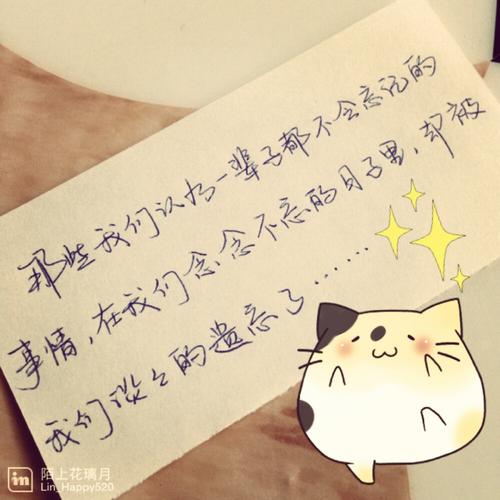 那些我们认为一辈子都不会忘记的
事情，在我们念念不忘的日子里，却被
我们淡々的遗忘了……
in 陌上花璃月
Lin_Happy520